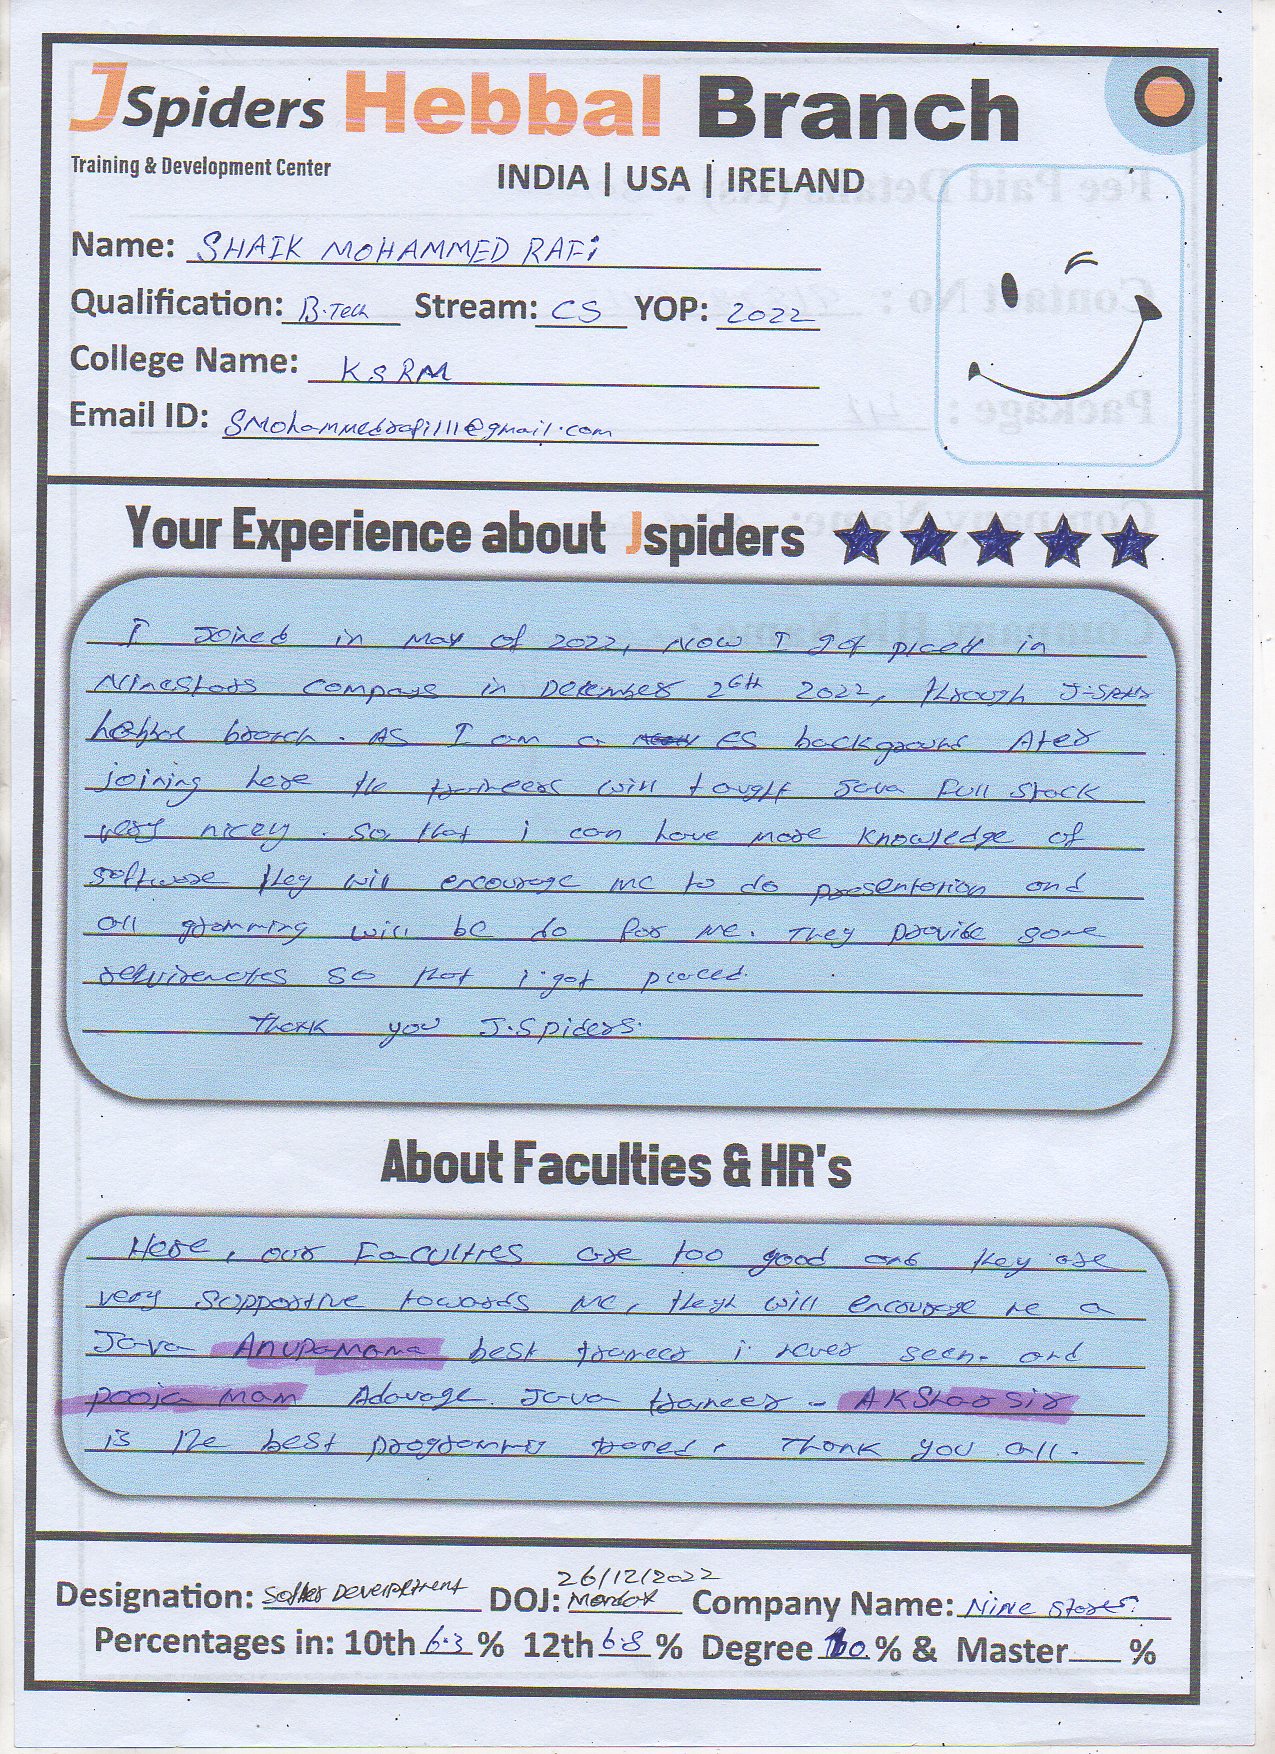 JSpiders Hebbal Branch
Training & Development Center
INDIA | USA | IRELAND
Name: SHAIK MOHAMMED RAFI
Qualification: B.Tech Stream: CS YOP: 2022
College Name: KSRM
Email ID: SMohammedrafi1111@gmail.com
Your Experience about Jspiders
I Joined in May of 2022, NOW I got in
compays in December 26th 2022, through
branch. AS I am a CS background
joining here the will taught Java Full stack
very nicely. So that i can have more knowledge of
software they will encourage me to do presentation and
all will be do for me. They provide
so that i got placed.
Thank you J.Spiders.
About Faculties & HR's
Here, our Faculties are too good and they are
very supportive towards me, will encourage me a
Java Anupamama best i never seen. and
pooja mam Java - AKShar Sir
is the best . Thank you all.
Designation: DOJ: 26/12/2022 Company Name: Nine
Percentages in: 10th 6.3 % 12th 6.8 % Degree % & Master %